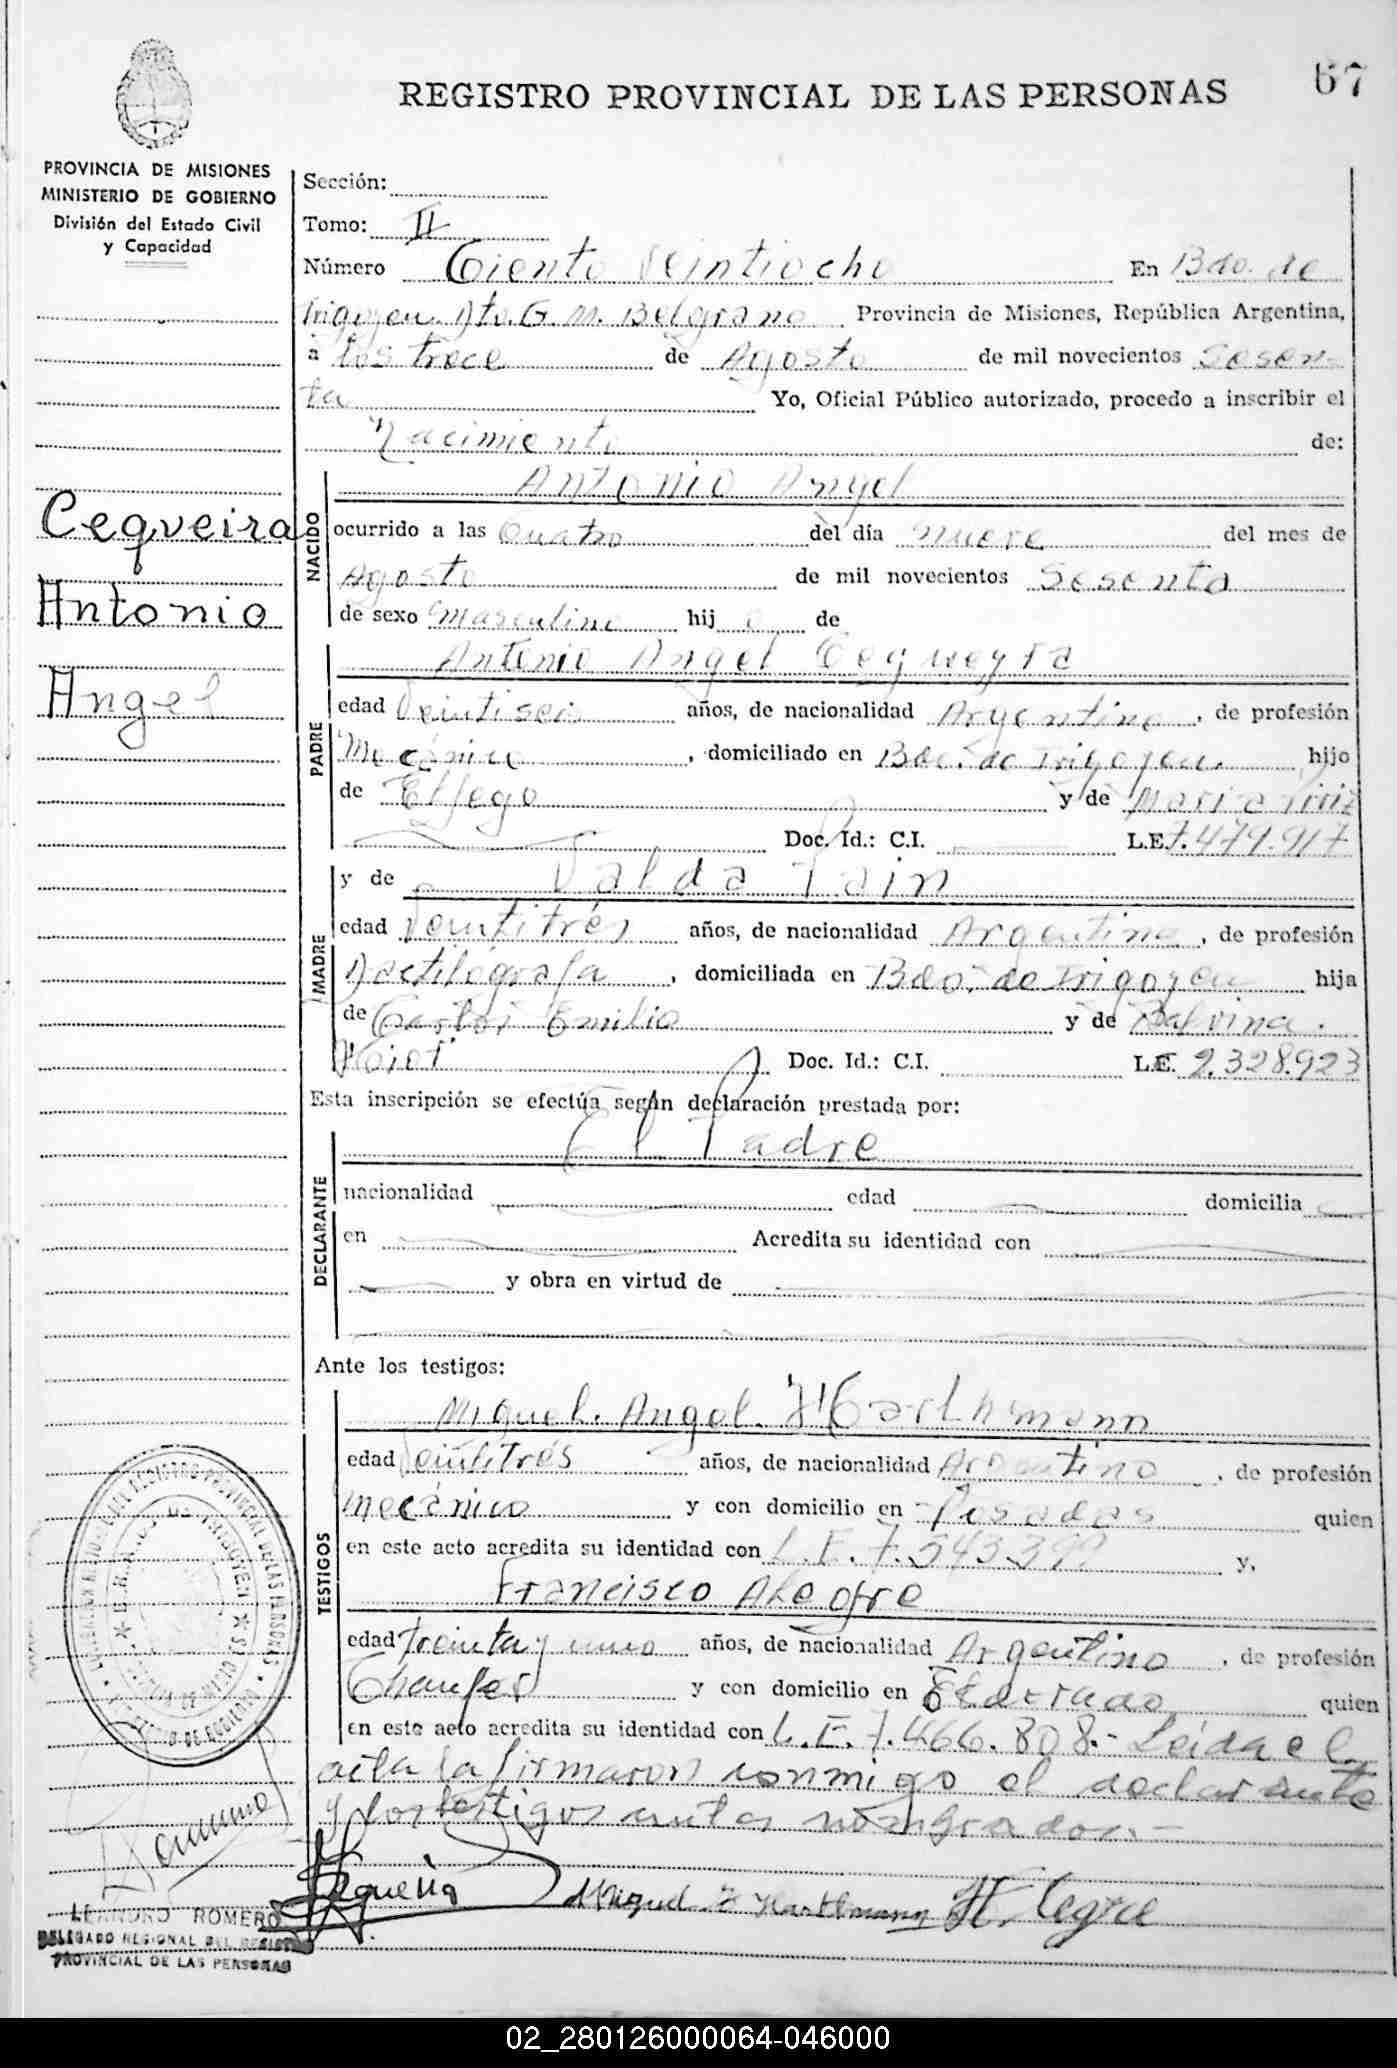 67
REGISTRO PROVINCIAL DE LAS PERSONAS
PROVINCIA DE MISIONES
MINISTERIO DE GOBIERNO
División del Estado Civil
y Capacidad
Sección:
Tomo: II
Número Ciento Veintiocho En Bdo. de
Irigoyen Dto. G. M. Belgrano Provincia de Misiones, República Argentina,
a los trece de Agosto de mil novecientos Sesen-
ta Yo, Oficial Público autorizado, procedo a inscribir el
Nacimiento de:
Cequeira
Antonio
Angel
NACIDO
Antonio Angel
ocurrido a las Cuatro del día nueve del mes de
Agosto de mil novecientos Sesenta
de sexo Masculino hij o de
PADRE
Antonio Angel Cequeyra
edad Veintiseis años, de nacionalidad Argentino, de profesión
Mecánico, domiciliado en Bdo. de Irigoyen. hijo
de Elfego y de Maria
Doc. Id.: C.I. L.E. 7.479.917
MADRE
y de Valda
edad Veintitrés años, de nacionalidad Argentina, de profesión
Dactilógrafa, domiciliada en Bdo. de Irigoyen hija
de Carlos Emilio y de Balvina.
Doc. Id.: C.I. L.E. 2.328.923
Esta inscripción se efectúa según declaración prestada por:
DECLARANTE
El Padre
nacionalidad edad domicilia
en Acredita su identidad con
y obra en virtud de
Ante los testigos:
TESTIGOS
Miguel. Angel.
edad Veintitrés años, de nacionalidad Argentino, de profesión
mecánico y con domicilio en Posadas quien
en este acto acredita su identidad con L.E. 7.543.399 y,
Francisco Alegre
edad treinta y uno años, de nacionalidad Argentino, de profesión
Chaufer y con domicilio en Eldorado quien
en este acto acredita su identidad con L.E. 7.466.808.- Leída el
acta la firmaron conmigo el declarante
y los testigos antes nombrados.-
LEANDRO ROMERO
DELEGADO REGIONAL DEL REGISTRO
PROVINCIAL DE LAS PERSONAS
02_280126000064-046000